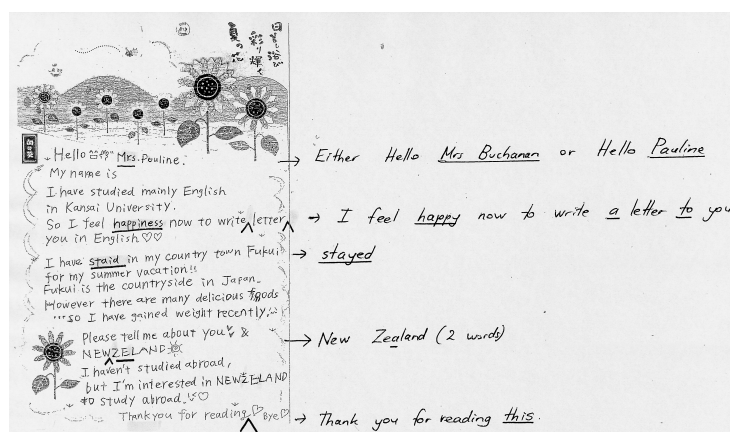 日差し浴び
彩り輝く
夏の花
Hello Mrs. Pauline.
My name is
I have studied mainly English
in Kansai University.
So I feel happiness now to write letter
you in English♡♡
I have staid in my country town Fukui
for my summer vacation!!
Fukui is the countryside in Japan.
However there are many delicious foods
...so I have gained weight recently.
Please tell me about you &
NEWZELAND
I haven't studied abroad,
but I'm interested in NEWZELAND
to study abroad. ♡
Thank you for reading♡ Bye♡
→ Either Hello Mrs Buchanan or Hello Pauline
→ I feel happy now to write a letter to you
→ stayed
→ New Zealand (2 words)
→ Thank you for reading this.